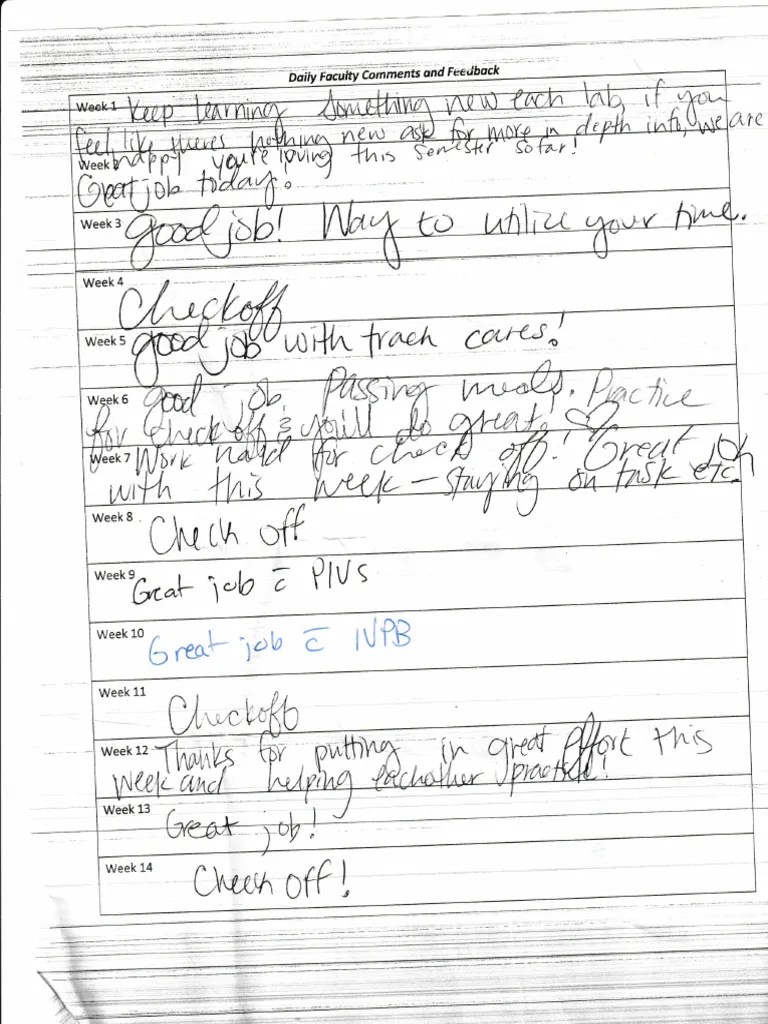 Daily Faculty Comments and Feedback
Week 1 Keep learning something new each lab, if you
feel like theres nothing new ask for more in depth info, we are
Week happy you're loving this semester so far!
Great job today.
Week 3 good job! Way to utilize your time.
Week 4
Checkoff
Week 5 good job with trach cares!
Week 6 good job passing meds. Practice
for check off & you'll do great!
Week 7 Work hard for check off! Great job
with this week - staying on task etc.
Week 8 Check off
Week 9 Great job c̄ PIVs
Week 10 Great job c̄ IVPB
Week 11
Checkoff
Week 12 Thanks for putting in great effort this
week and helping eachother practice!
Week 13 Great job!
Week 14 Check off!